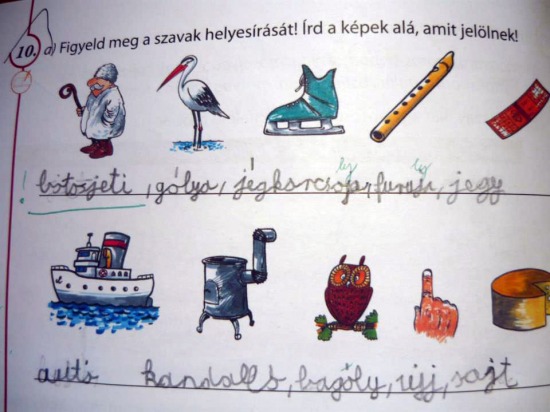 10. a) Figyeld meg a szavak helyesírását! Írd a képek alá, amit jelölnek!
ly ly
! botosjeti, gólya, jégkorcsoja, furuja, jegy
autó kandalló, bagoly, ujj, sajt